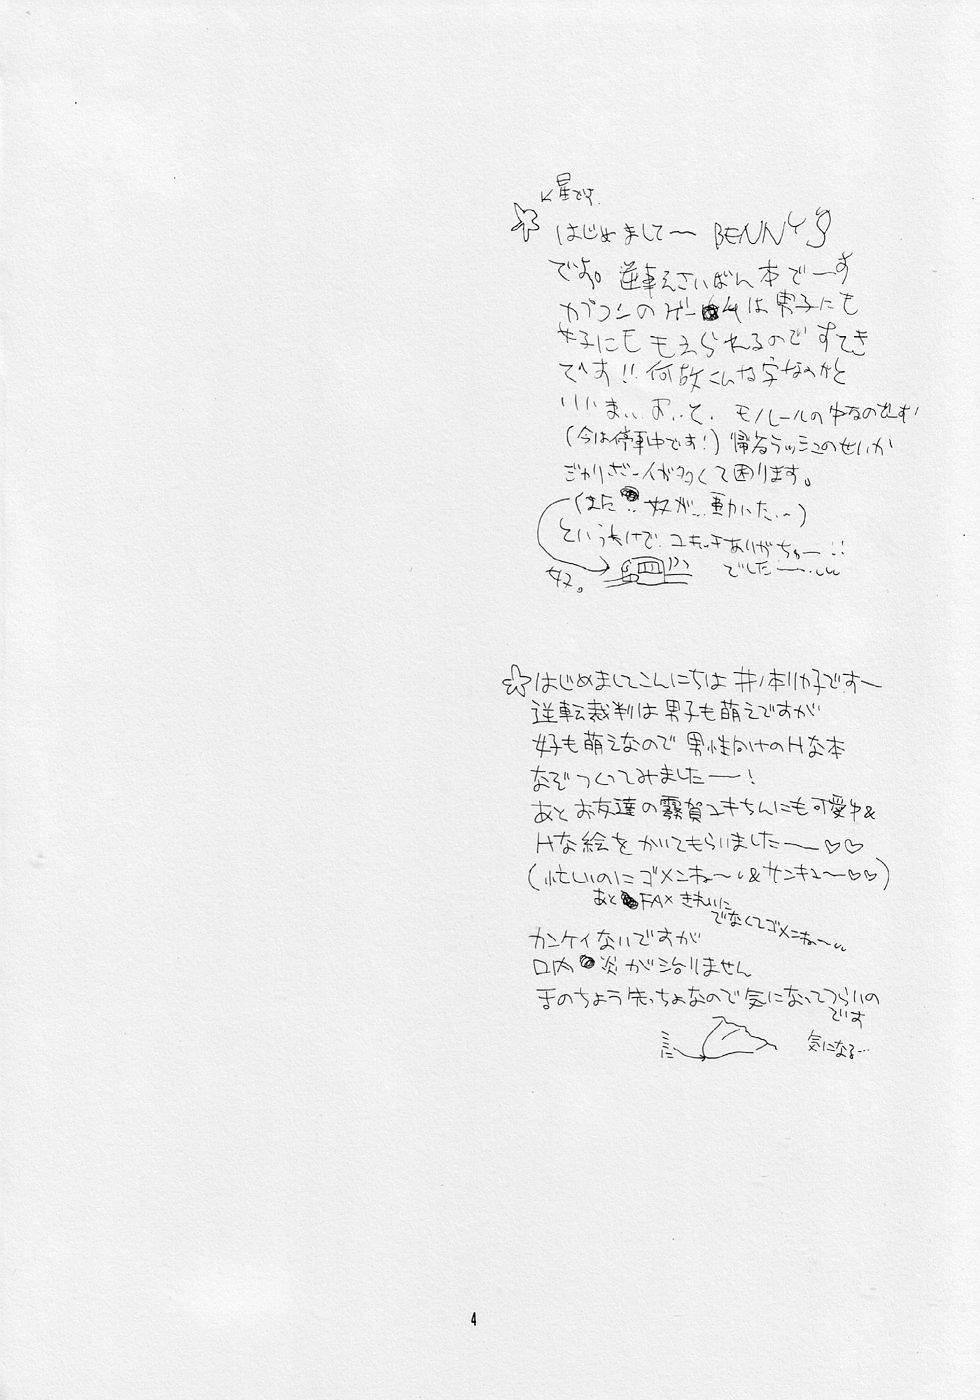 星です。
はじめまして〜 BENNY'S
です。逆転さいばん本でーす
カプコンのゲームは男子にも
女子にももえられるのですてき
です!!何故こんな字なのかと
いいま…おっと、モノレールの中なのでーす!
(今は停車中です!)帰省ラッシュのせいか
人が多くて困ります。
(また奴が…動いた…)
というわけで、ユキっちありがちゅー!!
でしたー…
奴。
はじめましてこんにちは 井ノ本リカ子です〜
逆転裁判は男子も萌えですが
女子も萌えなので 男性向けのHな本
なぞつくってみましたー!
あとお友達の霧賀ユキちんにも可愛い&
Hな絵をかいてもらいましたー♡♡
(忙しいのにゴメンね〜&サンキュー♡♡)
あとFAXきれいに
でなくてゴメンね〜
カンケイないですが
口内炎が治りません
舌のちょう先っちょなので気になってつらいの
です
ここ
気になる…
4